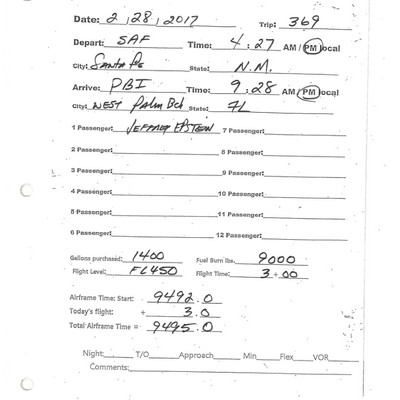 Date: 2/28/2017 Trip: 369
Depart: SAF Time: 4:27 AM/PM local
City: Santa Fe State: N.M.
Arrive: PBI Time: 9:28 AM/PM local
City: West Palm Bch State: FL
1 Passenger: JEFFREY EPSTEIN 7 Passenger:
2 Passenger: 8 Passenger:
3 Passenger: 9 Passenger:
4 Passenger: 10 Passenger:
5 Passenger: 11 Passenger:
6 Passenger: 12 Passenger:
Gallons purchased: 1400 Fuel Burn lbs. 9000
Flight Level: FL450 Flight Time: 3+00
Airframe Time: Start: 9492.0
Today's flight: + 3.0
Total Airframe Time = 9495.0
Night: T/O Approach Min Flex VOR
Comments: